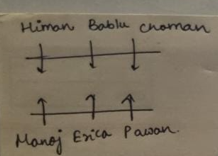 Himan Bablu Chaman
Manoj Erica Pawan.